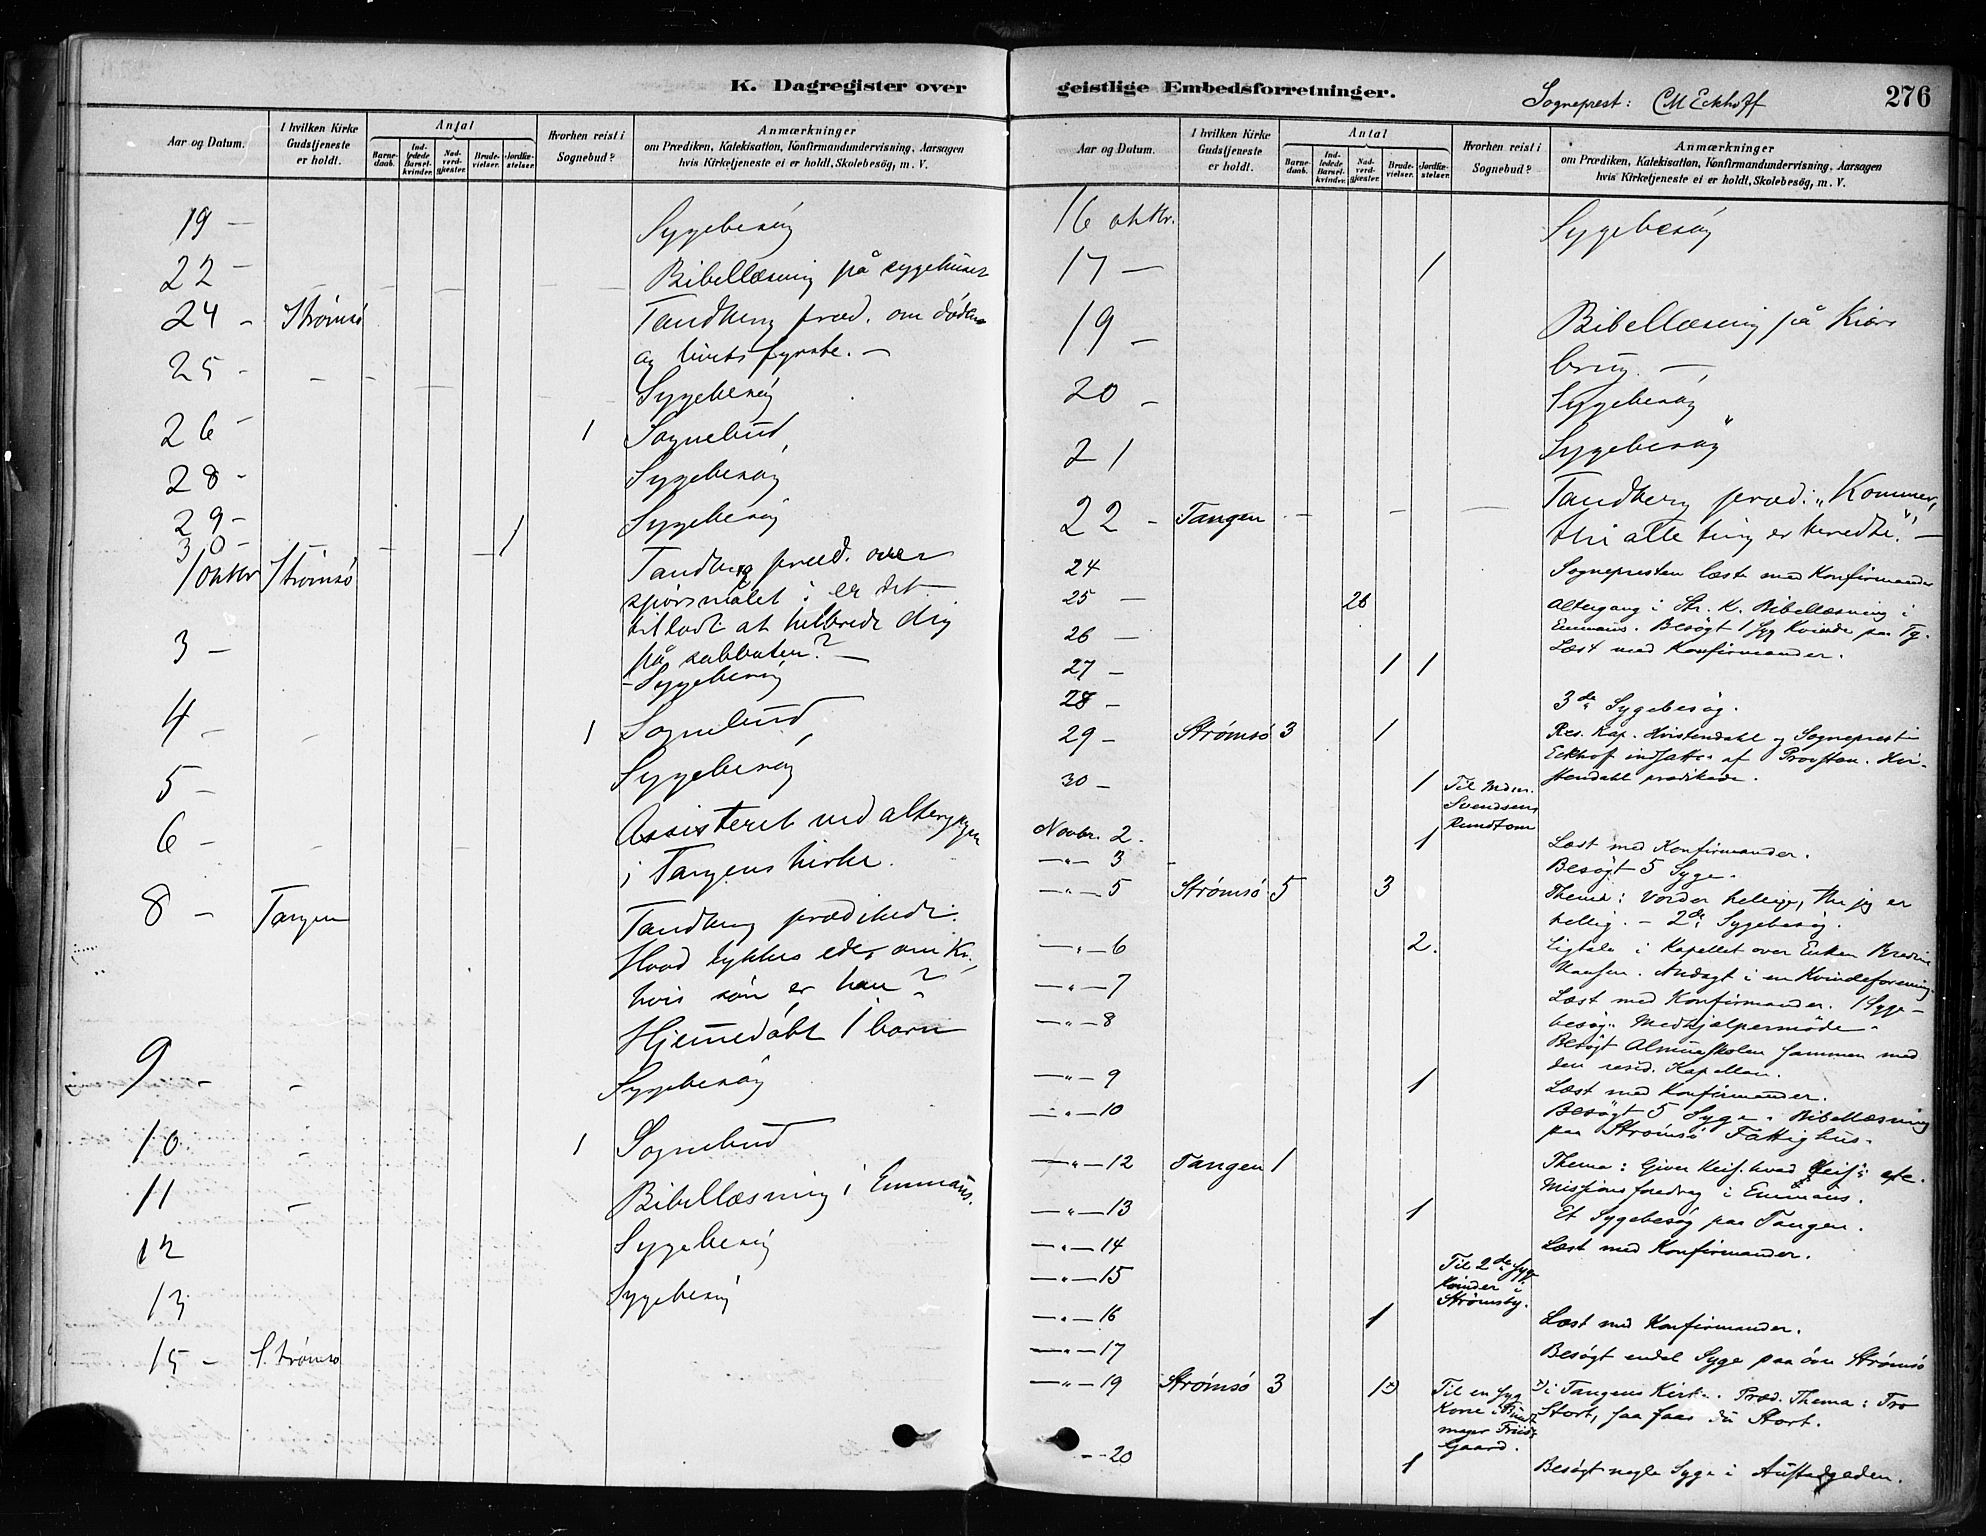 K. Dagregister over
Aar og Datum.
I hvilken Kirke Gudstjeneste er holdt.
Antal
Barne-daab.
Ind-ledede Barsel-kvinder.
Nad-verd-gjæster.
Brude-vielser.
Jordfæ-stelser.
Hvorhen reist i Sognebud?
Anmærkninger
om Prædiken, Katekisation, Konfirmandundervisning, Aarsagen
hvis Kirketjeneste ei er holdt, Skolebesøg, m. V.
19 — Sygebesøg
22 - Bibellæsning på sygehuset
24 - Strømsø Tandberg præd. om dødens
og livets fyrste. —
25 - Sygebesøg
26 - 1 Sognebud
28 - Sygebesøg
29 - Sygebesøg
30 - 1
1 oktbr Strømsø Tandberg præd. over
spørsmålet: er det
tilladt at helbrede dig
på sabbaten? —
3 - Sygebesøg
4 - 1 Sognebud
5 - Sygebesøg
6 - Assisteret ved altergang
i Tangens kirke.
8 - Tangen Tandberg prædikede.
Hvad tykkes eder om Kr.,
hvis søn er han?
Hjemmedøbt 1 barn
9 - Sygebesøg
10 1 Sognebud
11 Bibellæsning i Emmaus.
12 Sygebesøg
13 Sygebesøg
15 - Strømsø
geistlige Embedsforretninger.
Sogneprest: CM Eckhoff
276
Aar og Datum.
I hvilken Kirke Gudstjeneste er holdt.
Antal
Barne-daab.
Ind-ledede Barsel-kvinder.
Nad-verd-gjæster.
Brude-vielser.
Jordfæ-stelser.
Hvorhen reist i Sognebud?
Anmærkninger
om Prædiken, Katekisation, Konfirmandundervisning, Aarsagen
hvis Kirketjeneste ei er holdt, Skolebesøg, m. V.
16 oktbr. Sygebesøg
17 — 1
19 - Bibellæsning på Kiørs
brug. —
20 - Sygebesøg
21 Sygebesøg
22 - Tangen Tandberg præd: "Kommer,
thi alle ting er beredte." —
24 Sognepresten læste med Konfirmander
25 — 26 Altergang i Str. K. Bibellæsning i
Emmaus. Besøgt 1 syg Kvinde paa Tg.
26 — Læst med Konfirmander.
27 - 1 1
28 - 3de Sygebesøg.
29 - Strømsø 3 1 Res. Kap. Hvistendahl og Sogneprest
Eckhof indsattes af Provsten. Hvi-
stendahl prædikede.
30 - 1 Til Mdm.
Svendsen,
Rundtom
Novbr. 2. 1 Læst med Konfirmander.
—"— 3 Besøgt 5 Syge.
—"— 5 Strømsø 5 3 Thema: Vorder hellige, thi jeg er
hellig. — 2de Sygebesøg.
—"— 6 2. Ligtale i Kapellet over Enken
Hansen. Andagt i en Kvindeforening.
—"— 7 Læst med Konfirmander. 1 Syge-
besøg. Medhjælpermøde.
—"— 8 Besøgt Almueskolen sammen med
den resid. Kapellan.
—"— 9 1 Læst med Konfirmander.
—"— 10 Besøgt 5 Syge. Bibellæsning
paa Strømsø Fattighus.
—"— 12 Tangen 1 Thema: Giver Keis. hvad Keis:s
Missionsforedrag i Emmaus.
—"— 13 1 Et Sygebesøg paa Tangen.
—"— 14 Læst med Konfirmander.
—"— 15 Til 2de syge
Kvinder i
Strømsby.
—"— 16 1 Læst med Konfirmander.
—"— 17 Besøgt endel Syge paa øvre Strømsø
—"— 19 Strømsø 3 1x) Til en syg x) i Tangens Kirke. Præd. Thema: Tro
Kone i Stort, saa faar du Stort.
Gaard.
— 20 1 Besøgt nogle Syge i